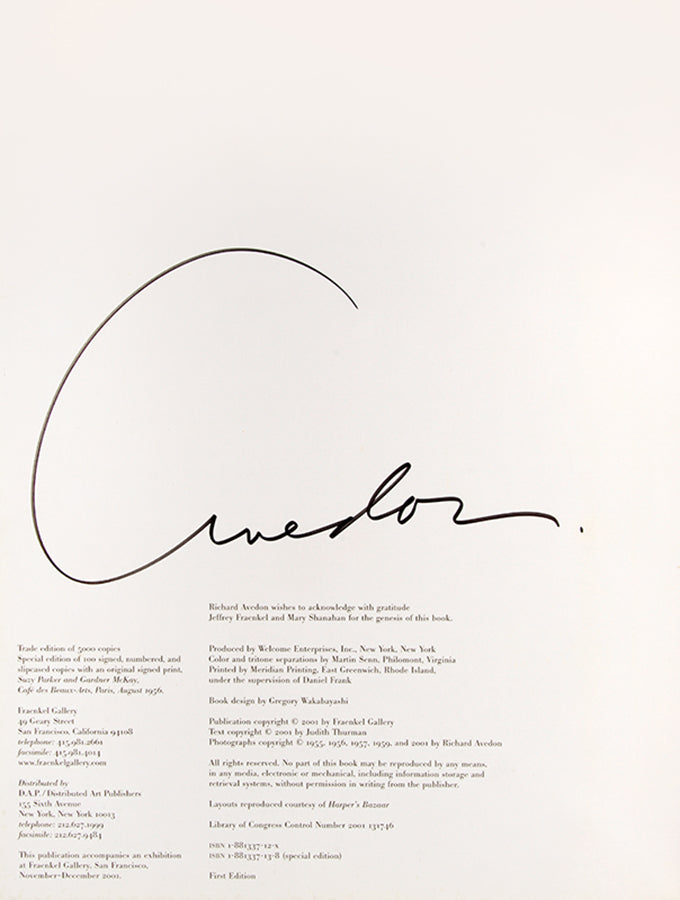 Avedon.
Richard Avedon wishes to acknowledge with gratitude
Jeffrey Fraenkel and Mary Shanahan for the genesis of this book.
Trade edition of 5000 copies
Special edition of 100 signed, numbered, and
slipcased copies with an original signed print,
Suzy Parker and Gardner McKay,
Café des Beaux-Arts, Paris, August 1956.
Fraenkel Gallery
49 Geary Street
San Francisco, California 94108
telephone: 415.981.2661
facsimile: 415.981.4014
www.fraenkelgallery.com
Distributed by
D.A.P./Distributed Art Publishers
155 Sixth Avenue
New York, New York 10013
telephone: 212.627.1999
facsimile: 212.627.9484
This publication accompanies an exhibition
at Fraenkel Gallery, San Francisco,
November–December 2001.
Produced by Welcome Enterprises, Inc., New York, New York
Color and tritone separations by Martin Senn, Philomont, Virginia
Printed by Meridian Printing, East Greenwich, Rhode Island,
under the supervision of Daniel Frank
Book design by Gregory Wakabayashi
Publication copyright © 2001 by Fraenkel Gallery
Text copyright © 2001 by Judith Thurman
Photographs copyright © 1955, 1956, 1957, 1959, and 2001 by Richard Avedon
All rights reserved. No part of this book may be reproduced by any means,
in any media, electronic or mechanical, including information storage and
retrieval systems, without permission in writing from the publisher.
Layouts reproduced courtesy of Harper's Bazaar
Library of Congress Control Number 2001 131746
ISBN 1-881337-12-x
ISBN 1-881337-13-8 (special edition)
First Edition